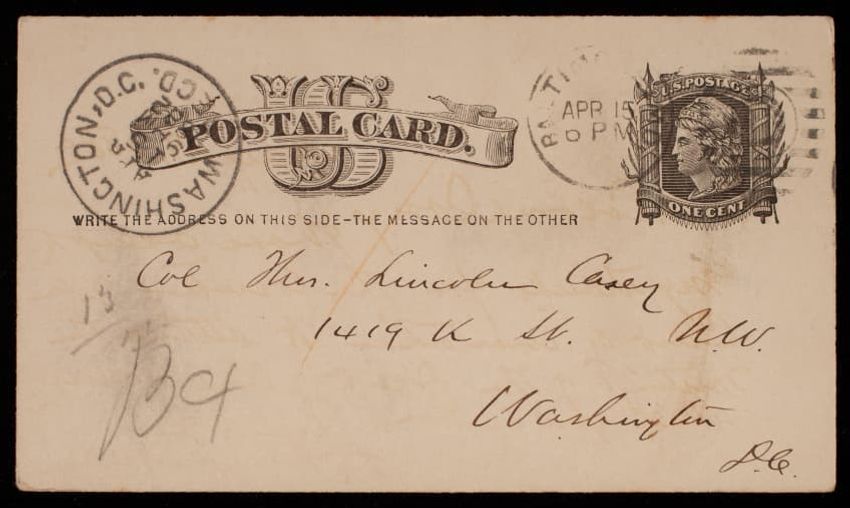 US
POSTAL CARD.
WASHINGTON, D.C.
APR 15
6 PM
U.S. POSTAGE
ONE CENT
WRITE THE ADDRESS ON THIS SIDE – THE MESSAGE ON THE OTHER
Col Thos. Lincoln Casey
1419 K St. N.W.
Washington
D.C.